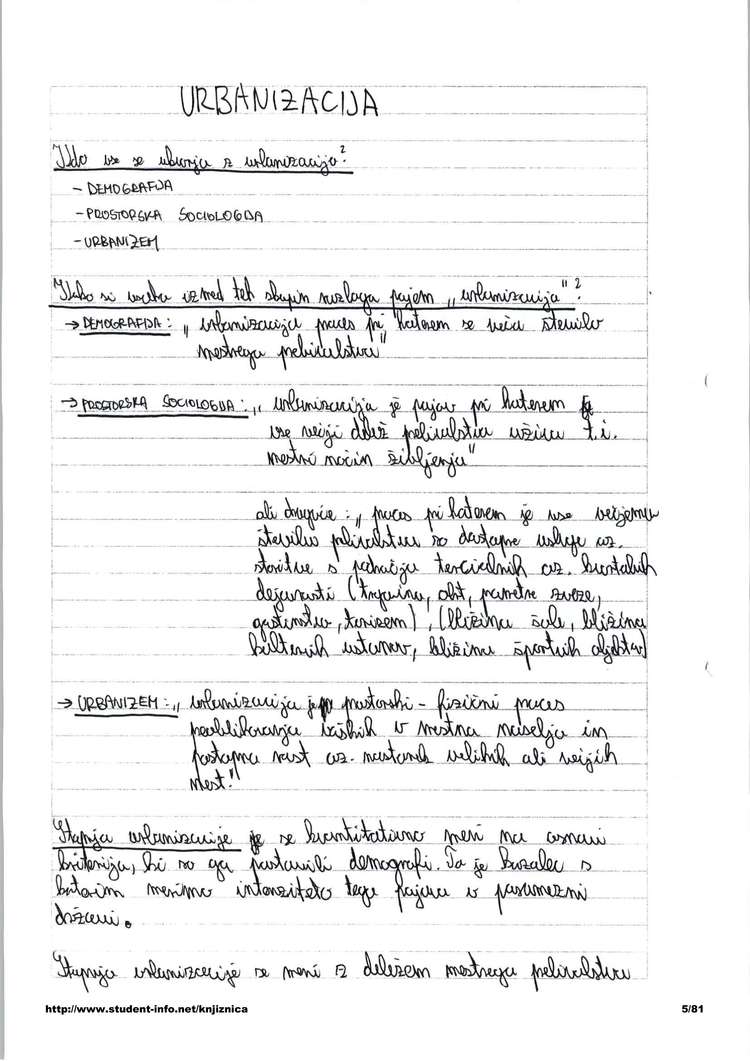 URBANIZACIJA
Kdo vse se ukvarja z urbanizacijo?
- DEMOGRAFIJA
- PROSTORSKA SOCIOLOGIJA
- URBANIZEM
Kako si vsaka izmed teh skupin razlaga pojem „urbanizacija"?
→ DEMOGRAFIJA: „urbanizacija proces pri katerem se veča število
mestnega prebivalstva"
→ PROSTORSKA SOCIOLOGIJA: „urbanizacija je pojav pri katerem
vse večji delež prebivalstva uživa t.i.
mestni način življenja"
ali drugače: „proces pri katerem je vse večjemu
številu prebivalstva so dostopne usluge oz.
storitve s področja terciarnih oz. kvartalnih
dejavnosti (trgovina, obrt, prometne zveze,
gostinstvo, turizem), (bližina šole, bližina
kulturnih ustanov, bližina športnih objektov)
→ URBANIZEM: „urbanizacija je prostorski - fizični proces
preoblikovanja vaških v mestna naselja in
postopna rast oz. nastanek velikih ali večjih
mest."
Stopnja urbanizacije se kvantitativno meri na osnovi
kriterija, ki so ga postavili demografi. To je kazalec s
katerim merimo intenziteto tega pojava v posamezni
državi.
Stopnja urbanizacije se meri z deležem mestnega prebivalstva
http://www.student-info.net/knjiznica
5/81